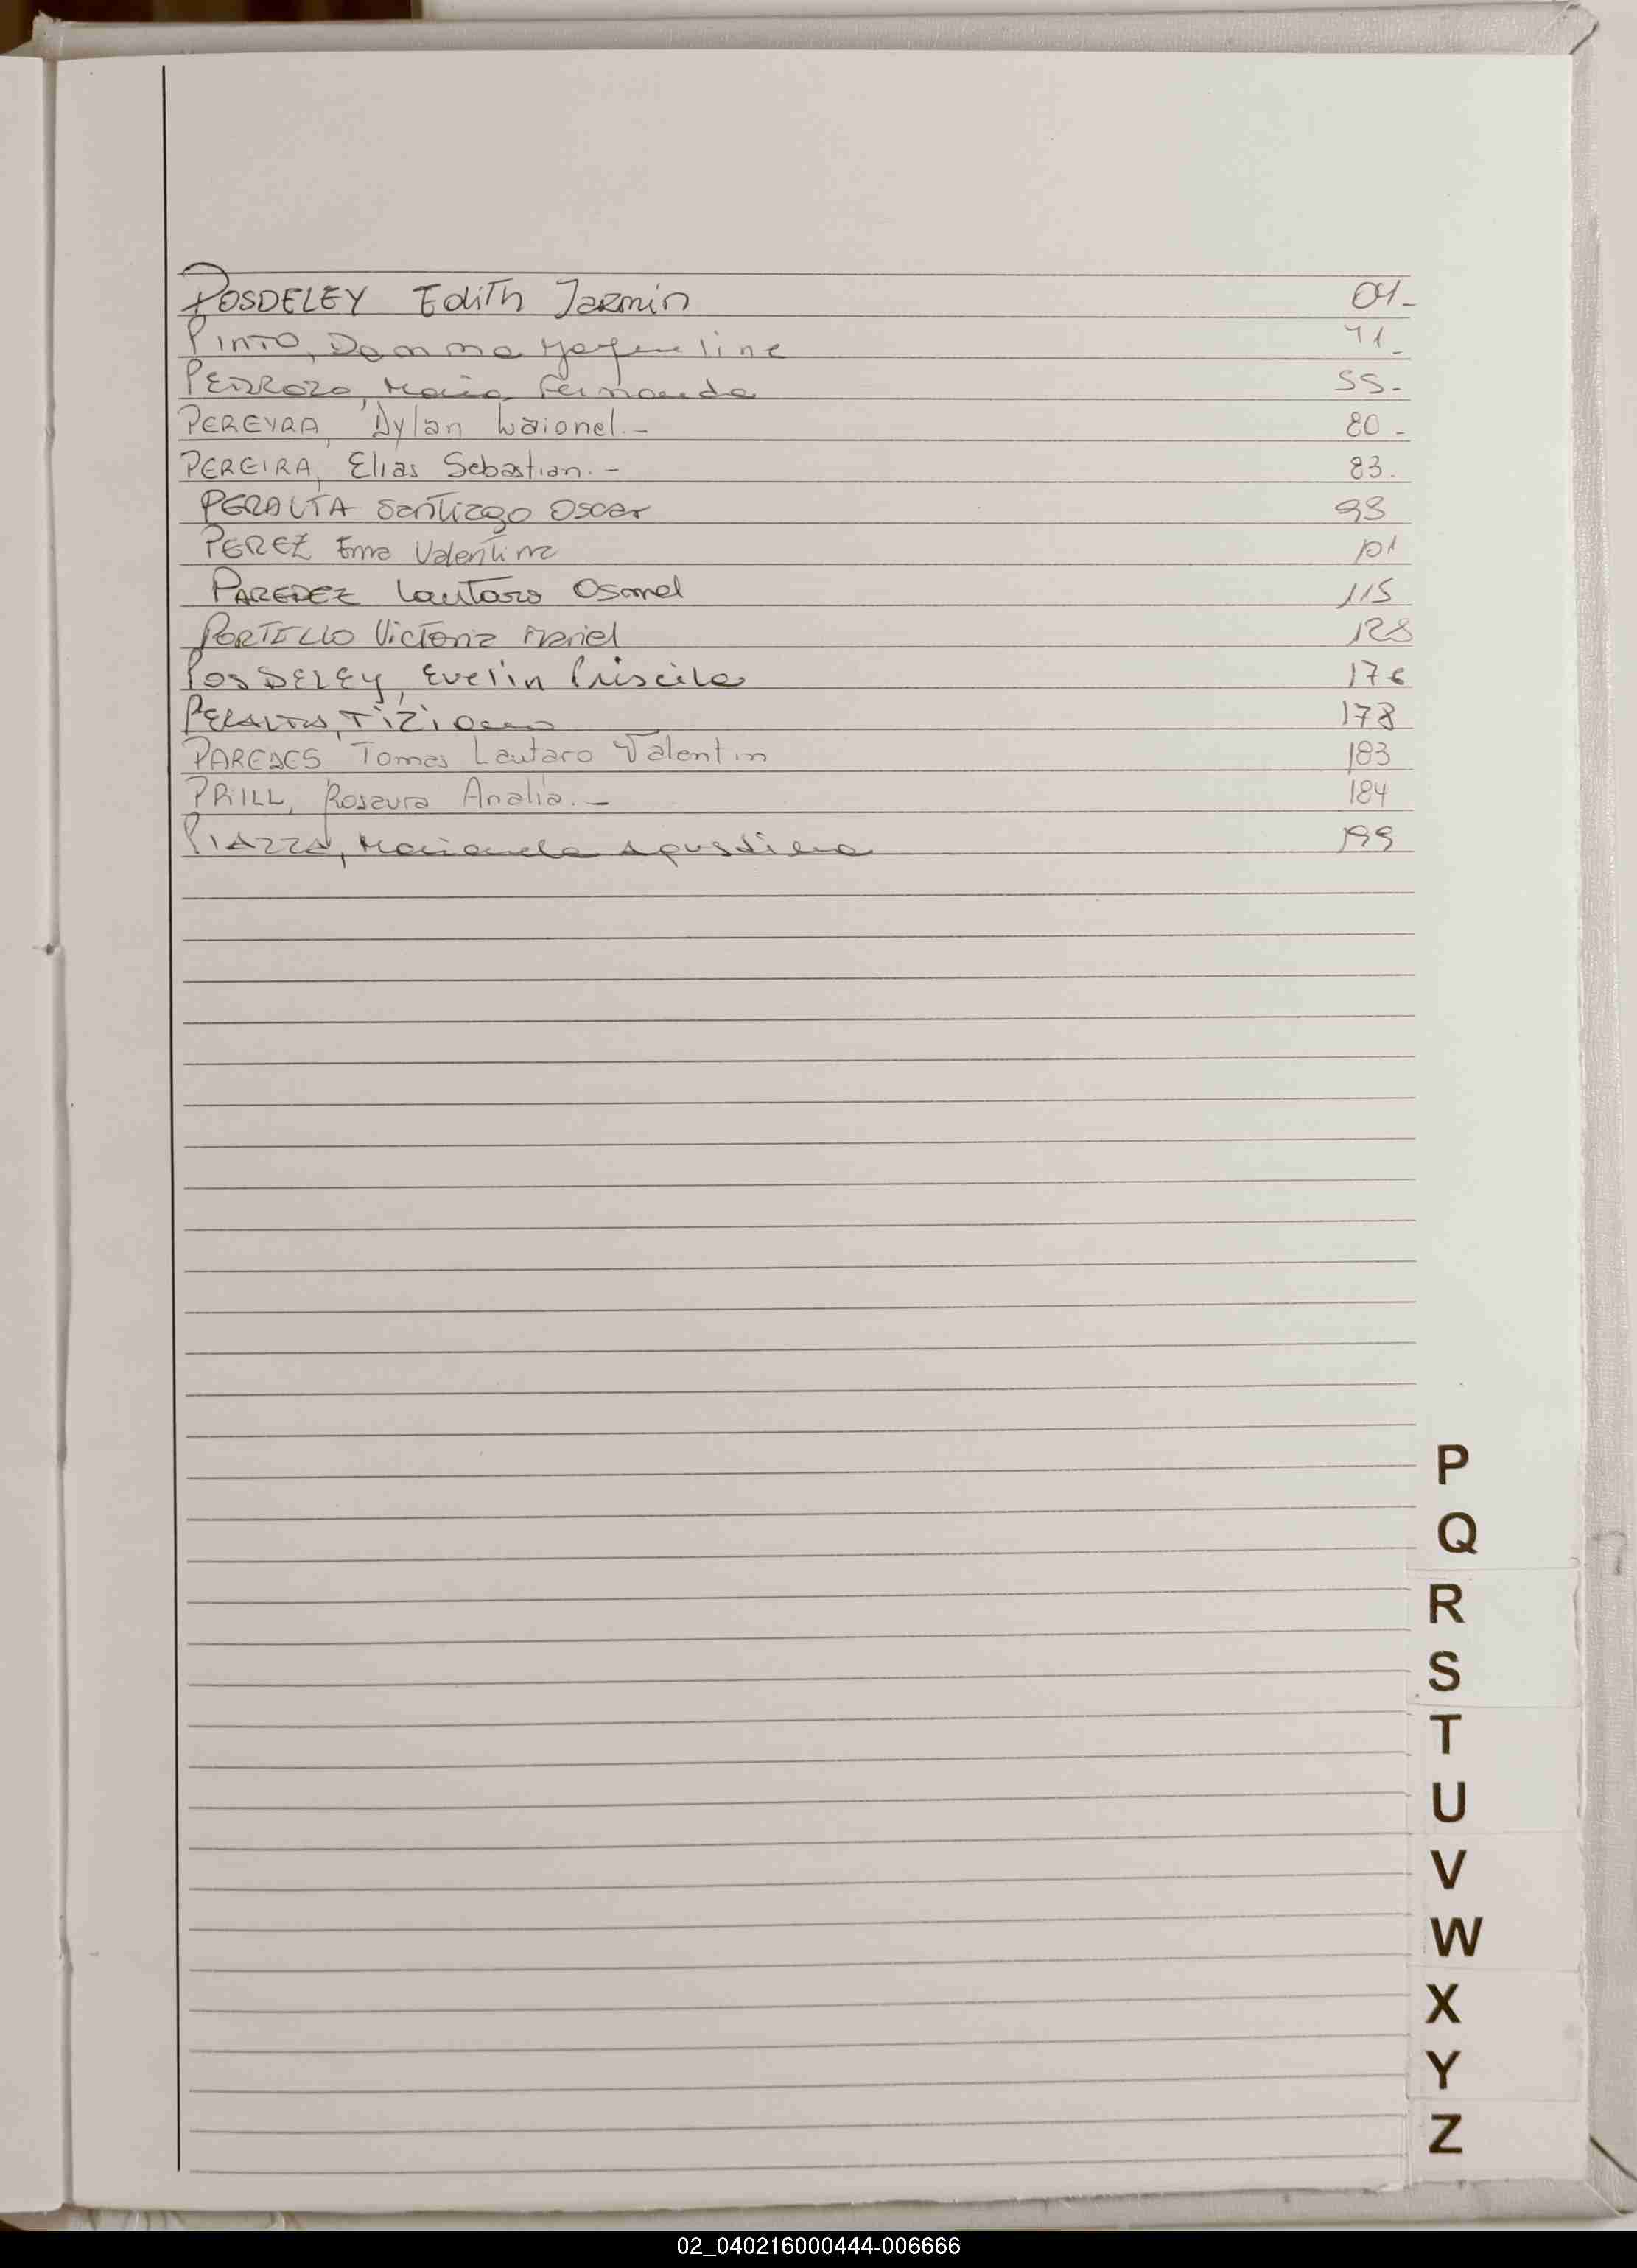 POSDELEY Edith Jazmin 01-
PINTO, Damma Yaqueline 41-
PEDROZO, Maria Fernanda 55-
PEREYRA, Dylan Laionel.- 80-
PEREIRA, Elias Sebastian.- 83.
PERALTA Santiago Oscar 93
PEREZ Emma Valentina 101
PAREDEZ Lautaro Osmel 115
PORTILLO Victoria Mariel 128
POSDELEY, Evelin Priscila 176
PERALTA, Tiziano 178
PAREDES Tomas Lautaro Valentin 183
PRILL, Rosaura Analia.- 184
PIAZZA, Marianela Agustina 199
P
Q
R
S
T
U
V
W
X
Y
Z
02_040216000444-006666